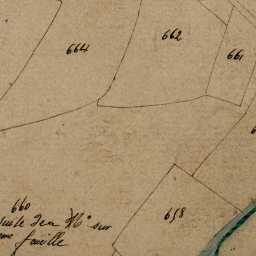 664
662
661
660
suite d'un N° sur
feuille
658